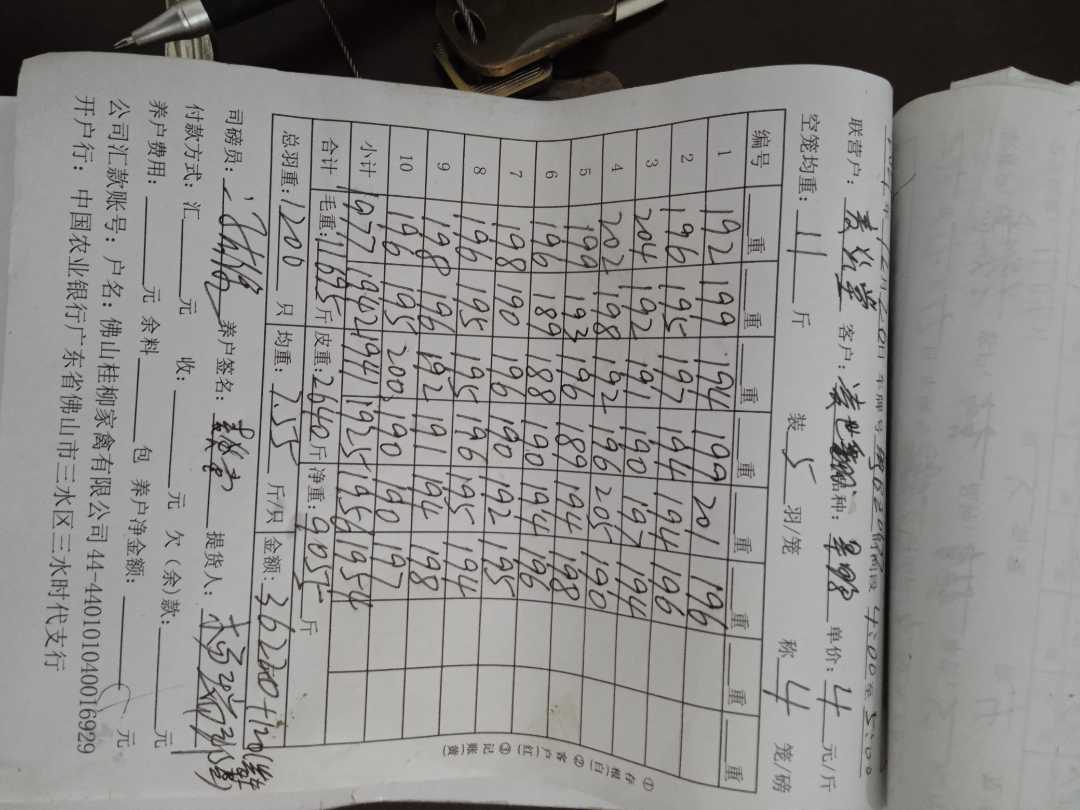 联营户: 客户: 品种: 单价: 4 元/斤
空笼均重: 11 斤 装 5 羽/笼 称 4 笼/磅
编号 重 重 重 重 重 重 重 重
1 192 199 194 199 201 196
2 196 195 197 194 194 196
3 204 192 191 190 197 194
4 202 198 192 196 205 190
5 199 193 196 189 194 198
6 196 189 188 190 194 196
7 198 190 196 190 192 195
8 196 195 195 196 195 194
9 198 196 192 191 194 198
10 196 195 200 190 190 197
小计 1977 1942 1941 1925 1956 1954
合计 毛重: 11695 斤 皮重: 2640 斤 净重: 9055 斤
总羽重: 1200 只 均重: 7.55 斤/只 金额: 36220+120
①存根(白) ②客户(红) ③记账(黄)
司磅员: 养户签名: 提货人:
付款方式: 汇 元 收: 元 欠(余)款: 元
养户费用: 元 余料 包 养户净金额: 元
公司汇款账号: 户名: 佛山桂柳家禽有限公司 44-440101040016929
开户行: 中国农业银行广东省佛山市三水区三水时代支行